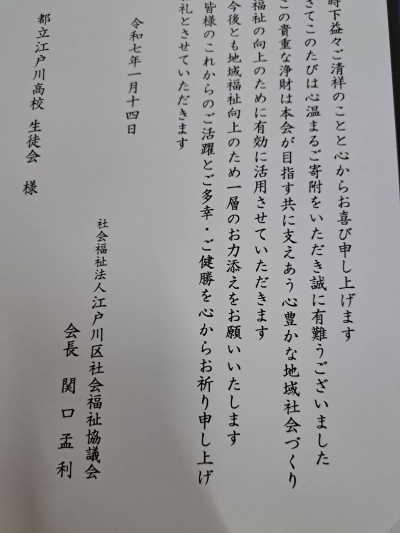 時下益々ご清祥のことと心からお喜び申し上げます
さてこのたびは心温まるご寄附をいただき誠に有難うございました
この貴重な浄財は本会が目指す共に支えあう心豊かな地域社会づくり
福祉の向上のために有効に活用させていただきます
今後とも地域福祉向上のため一層のお力添えをお願いいたします
皆様のこれからのご活躍とご多幸・ご健勝を心からお祈り申し上げ
礼とさせていただきます
令和七年一月十四日
社会福祉法人江戸川区社会福祉協議会
会長 関口孟利
都立江戸川高校 生徒会 様